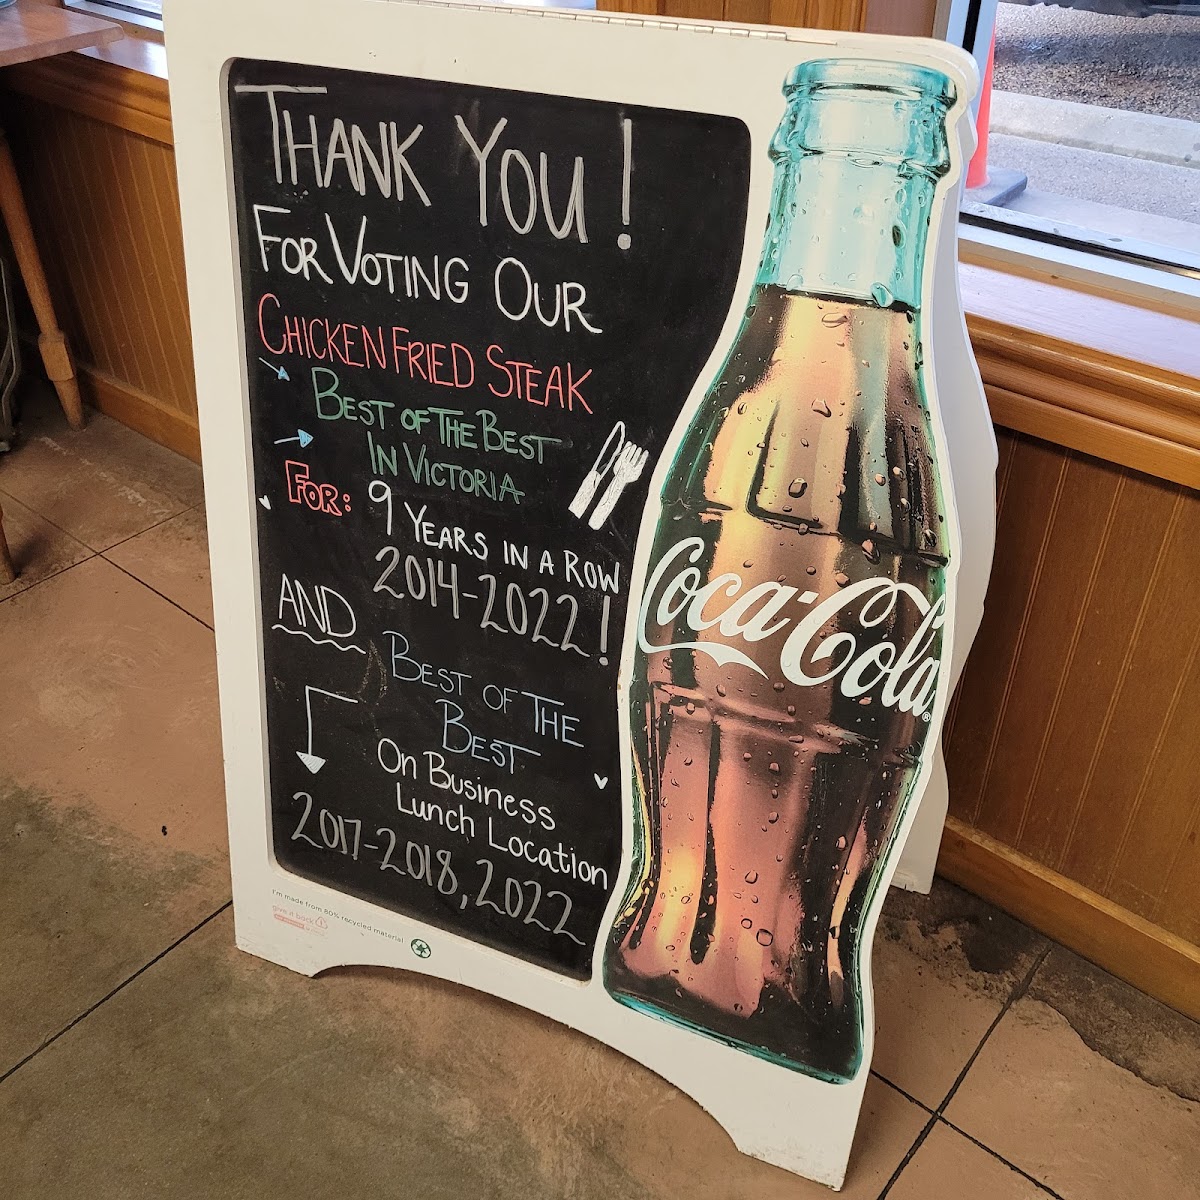 THANK YOU!
FOR VOTING OUR
CHICKEN FRIED STEAK
BEST OF THE BEST
IN VICTORIA
FOR: 9 YEARS IN A ROW
2014-2022!
AND
BEST OF THE
BEST
On Business
Lunch Location
2017-2018, 2022
I'm made from 80% recycled material
give it back
Coca-Cola®